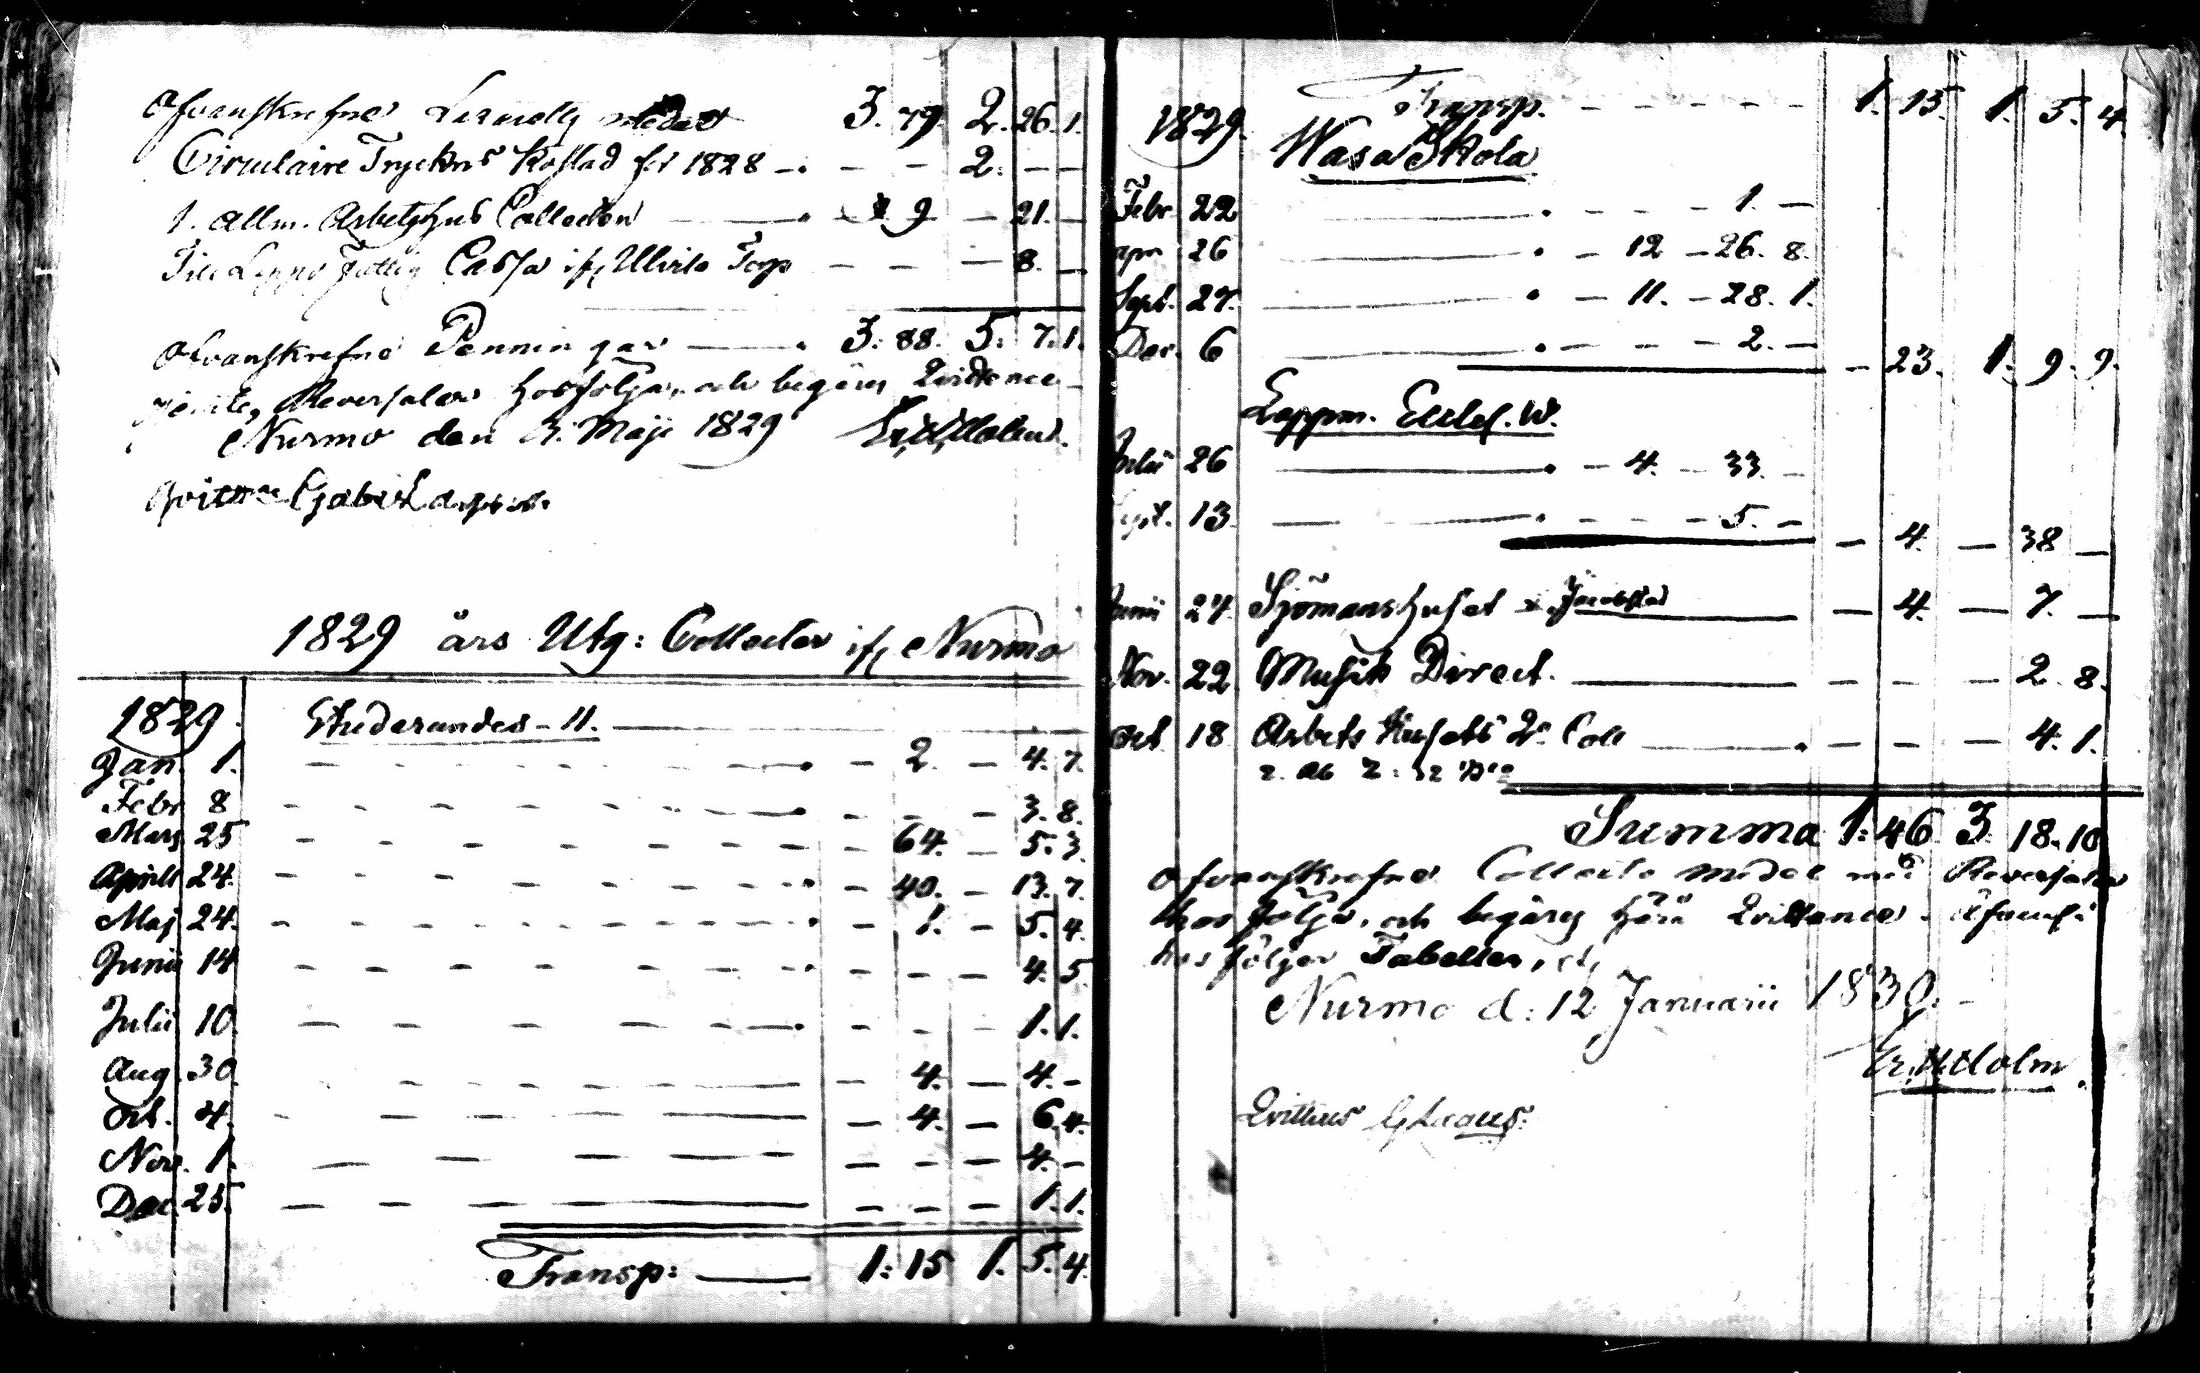 Ofvanskrefne medel 3. 79. 2. 26. 1.
Circulaire Tryckns Kostad för 1828 — 2. — —
1. Allm. Arbetshus Collecten — 9 — 21. —
Till Lappo Fattig Cassa if. Ulvila Torp — — — 8. —
Ofvanskrefne Penningar — 3. 88. 5. 7. 1.
Reversaler hosfölja, och begäres Qvittence
Nurmo den Maji 1829 Er. H. Holm.
Qvitteras
1829 års Utg: Collecter if. Nurmo
1829. Studerandes - H.
Jan. 1. — 2. — 4. 7.
Febr 8 — — — 3. 8.
Mars 25 — 64. — 5. 3.
Aprill 24. — 40. — 13. 7.
Maj 24. — 1. — 5. 4.
Junii 14 — — — 4. 5
Julii 10. — — — 1. 1.
Aug. 30. — 4. — 4. —
Oct. 4. — 4. — 6. 4.
Nov. 1. — — — 4. —
Dec. 25. — — — 1. 1.
Transp: — 1: 15 1. 5. 4.
1829. Transp. — 1. 15 1. 5. 4.
Wasa Skola
Febr. 22 — — — 1. —
Apr. 26 — 12 — 26. 8.
Sept. 27. — 11. — 28. 1.
Dec. 6 — — — 2. — — 23. 1. 9. 9.
Lappm. Eccles. W.
Julii 26 — 4. — 33. —
Sept. 13. — — — 5. — — 4. — 38 —
Junii 24 Sjömanshuset Jacobstad — 4. — 7. —
Nov. 22 Musik Direct. — — — 2. 8.
Oct. 18 Arbets Husets 2. Coll — — — 4. 1.
Summa 1: 46 3. 18. 10
Ofvanskrefne Collecte medel Reversaler
hosfölja, och begäres Qvittence.
hosföljer Tabeller,
Nurmo d: 12 Januarii 1830.
Er. H. Holm.
Qvitteras